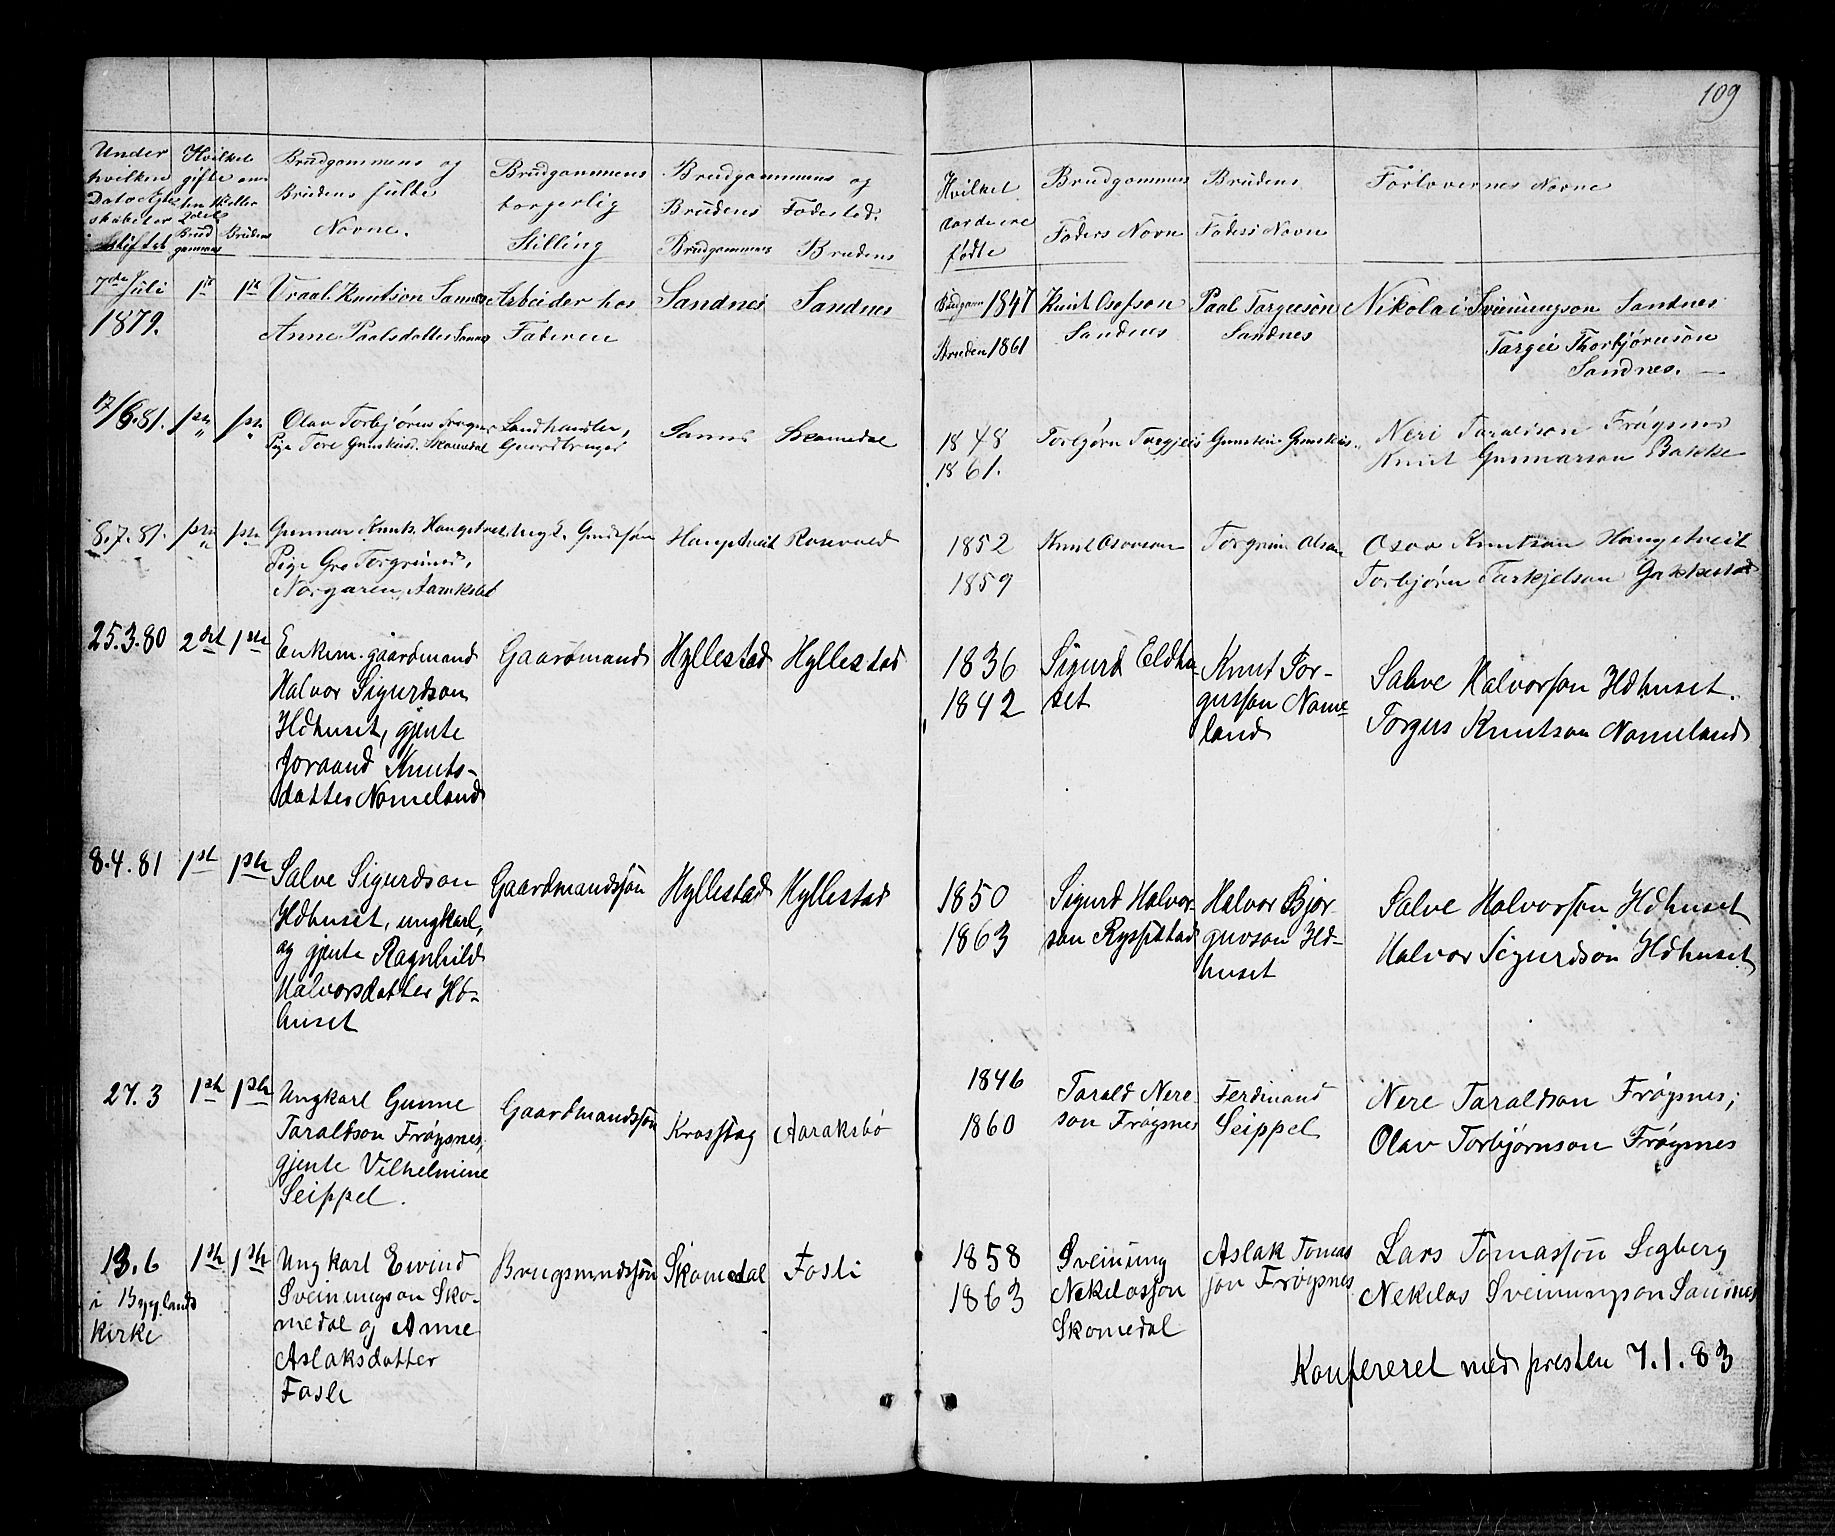 109
Under hvilken Dato Ægteskabet er stiftet
Hvilket gifte
Brudgommens
Brudens
Brudgommens og Brudens fulde Navne.
Brudgommens borgerlig Stilling
Brudgommens og Brudens Fødested.
Brudgommens
Brudens
Hvilket Aar de ere fødte
Brudgommens Faders Navn
Brudens Faders Navn
Forlovernes Navne
7de Juli 1879.
1st
1st
Vraal Knutson Sannes
Anne Paalsdatter Sannes
Arbeider hos Faderen
Sandnes
Sandnes
Brudgom 1847
Bruden 1861
Knut Osofson
Sandnes
Paal Targeeson
Sandnes
Nikolai Sveinungson Sandnes
Targei Thorbjørnson
Sandnes. —
17/6.81.
Olav Torbjørns
Pige Tore Gunsteinsd. Skomedal
Landhandler,
Gaardbruger
Sannes
Skomedal
1848
1861.
Torbjørn Targjeis
Neri Taraldson Frøysnes
Knut Gunnarson Bakke
8.7.81.
Gunnar Knuts. Haugetveit
Pige Gro Torgrimsd.
Norgaren,
Haugetveit
1852
1859
Knut Osovson
Torgrim Olson
Osov Knutson Haugetveit
Torbjørn Tarkjelson
25.3.80
2det
1ste
Enkem. gaardmand
Halvor Sigurdson
Hdhuset, gjente
Joraand Knuts-
datter Nomeland
Gaardmand
Hyllestad
Hyllestad
1836
1842
Sigurd Eldhu-
set
Knut Tor-
gusson Nome-
land
Salve Halvorson Hdhuset.
Torgus Knutson Nomeland
8.4.81
1st
1ste
Salve Sigurdson
Hdhuset, ungkarl,
og gjente Ragnhild
Halvorsdatter Hd-
huset
Gaardmandssøn
Hyllestad
Hyllestad
1850
1863
Sigurd Halvor-
son Rysstad
Halvor Bjor-
guvson Hd-
huset
Salve Halvorson Hdhuset
Halvor Sigurdson Hdhuset
27.3
1ste
1ste
Ungkarl Gunne
Taraldson Frøysnes,
gjente Vilhelmine
Seippel.
Gaardmandssøn
Krosstog
Aaraksbø
1846
1860
Tarald Nere-
son Frøysnes
Ferdinand
Seippel
Nere Taraldson Frøysnes;
Olav Torbjørnson Frøysnes
13.6
i Bygglands
Kirke
1ste
1ste
Ungkarl Eivind
Sveinungson Sko-
medal og Anne
Aslaksdatter
Fosli
Brugsmandssøn
Skomedal
Fosli
1858
1863
Sveinung
Nekilasson
Skomedal
Aslak Tomas-
son Frøysnes
Lars Tomasson Segberg
Nekilas Sveinungson Sandnes
Konfereret med presten 7.1.83